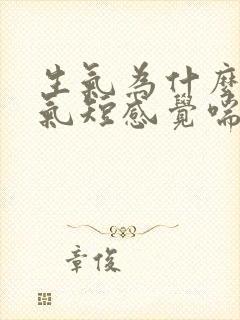 生氣為什麼
氣短感覺喘
章俊